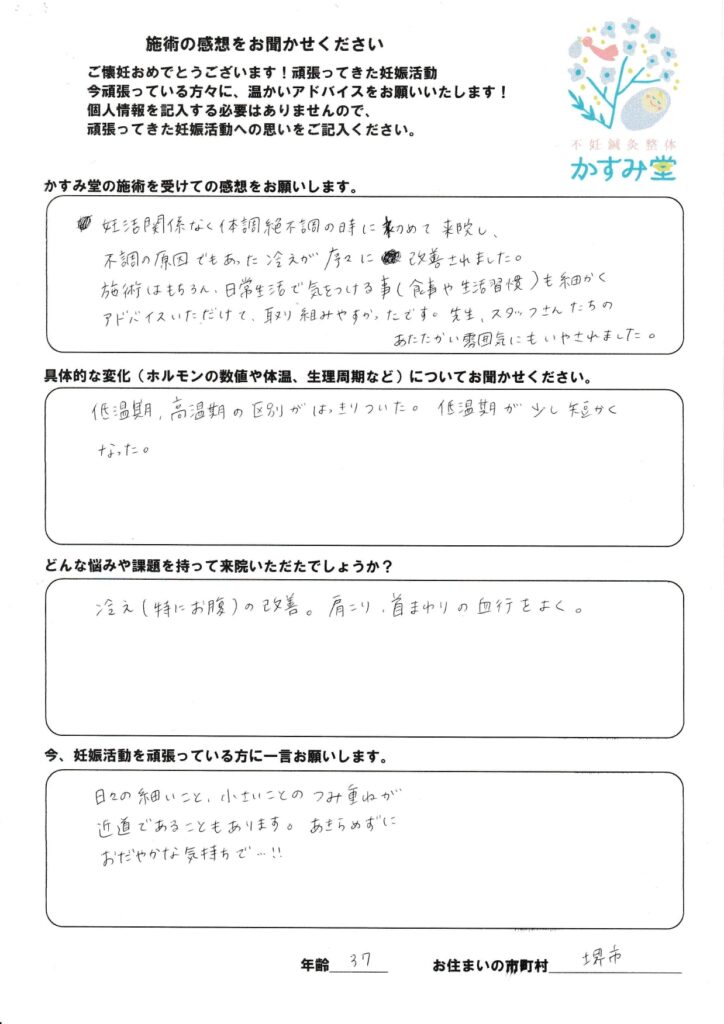 施術の感想をお聞かせください
ご懐妊おめでとうございます！頑張ってきた妊娠活動
今頑張っている方々に、温かいアドバイスをお願いいたします！
個人情報を記入する必要はありませんので、
頑張ってきた妊娠活動への思いをご記入ください。
不妊鍼灸整体
かすみ堂
かすみ堂の施術を受けての感想をお願いします。
妊活関係なく体調絶不調の時に初めて来院し、
不調の原因でもあった冷えが序々に改善されました。
施術はもちろん、日常生活で気をつける事(食事や生活習慣)も細かく
アドバイスいただけて、取り組みやすかったです。先生、スタッフさんたちの
あたたかい雰囲気にもいやされました。
具体的な変化（ホルモンの数値や体温、生理周期など）についてお聞かせください。
低温期、高温期の区別がはっきりついた。低温期が少し短かく
なった。
どんな悩みや課題を持って来院いただたでしょうか？
冷え(特にお腹)の改善。肩こり、首まわりの血行をよく。
今、妊娠活動を頑張っている方に一言お願いします。
日々の細いこと、小さいことのつみ重ねが
近道であることもあります。あきらめずに
おだやかな気持ちで…!!
年齢 37 お住まいの市町村 堺市